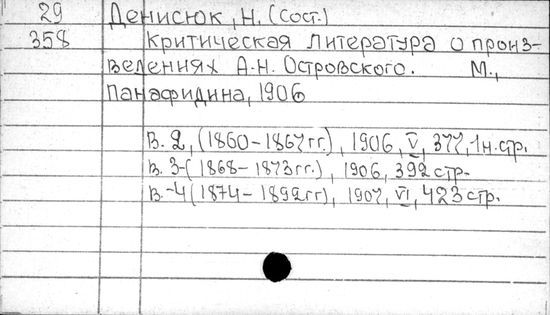 29 Денисюк, Н. (Сост.)
358 Критическая литература о произ-
ведениях А.Н. Островского. М.,
Панафидина, 1906
В. 2, (1860-1867гг.), 1906, V, 377, 1н.стр.
В. 3-(1868-1873гг.), 1906, 392 стр.
В.-4 (1874-1892гг), 1907, VI, 423 стр.